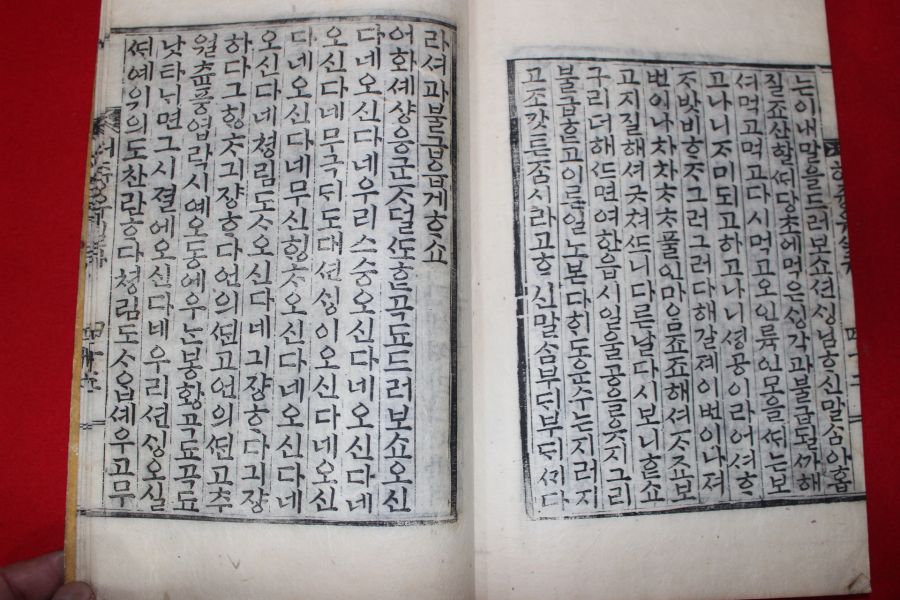 는이내말을드러보쇼션ᄉᆡᆼ님ᄒᆞ신말삼아홉
질죠산할ᄯᅢ당초에먹은ᄉᆡᆼ각과불급될ᄭᅡ해
셔먹고먹고다시먹고오인륙인모을ᄯᅢ는보
고나니ᄌᆞ미되고하고나니셩공이라어셔ᄒᆞ
ᄌᆞ밧비ᄒᆞᄌᆞ그러그러다해갈졔이번이나져
번이나차차차차풀인마음죠죠해셔ᄌᆞ죠보
고지질해셔긋쳐ᄯᅳ니다른날다시보니ᄒᆞᆫ쇼
구리더해ᄯᅳ면여한읍시일울공을읏지그리
불급ᄒᆞᆫ고이른일노본다ᄒᆡ도운수는지러지
고죠갓튼 시라고ᄒᆞ신말ᄉᆞᆷ부ᄃᆡ부ᄃᆡᄭᆡ다
라셔과불급읍게ᄒᆞ쇼
어화셰샹응군ᄌᆞ덜ᄯᅩᄒᆞᆫ곡됴드러보쇼오신
다네오신다네우리스승오신다네오신다네
오신다네무극ᄃᆡ도대션ᄉᆡᆼ이오신다네오신
다네오신다네무신ᄒᆡᆼᄎᆞ오신다네오신다네
오신다네쳥림도ᄉᆞ오신다네긔쟝ᄒᆞ다긔쟝
하다그ᄒᆡᆼᄎᆞ긔쟝ᄒᆞ다언의ᄯᆡᆫ고언의ᄯᆡᆫ고추
월츈풍엽락시예오동에우는봉황곡됴곡됴
낫타니면그시졀에오신다네우리션ᄉᆡᆼ오실
ᄯᅢ예위의도찬란ᄒᆞ다쳥림도ᄉᆞ 셰우고무